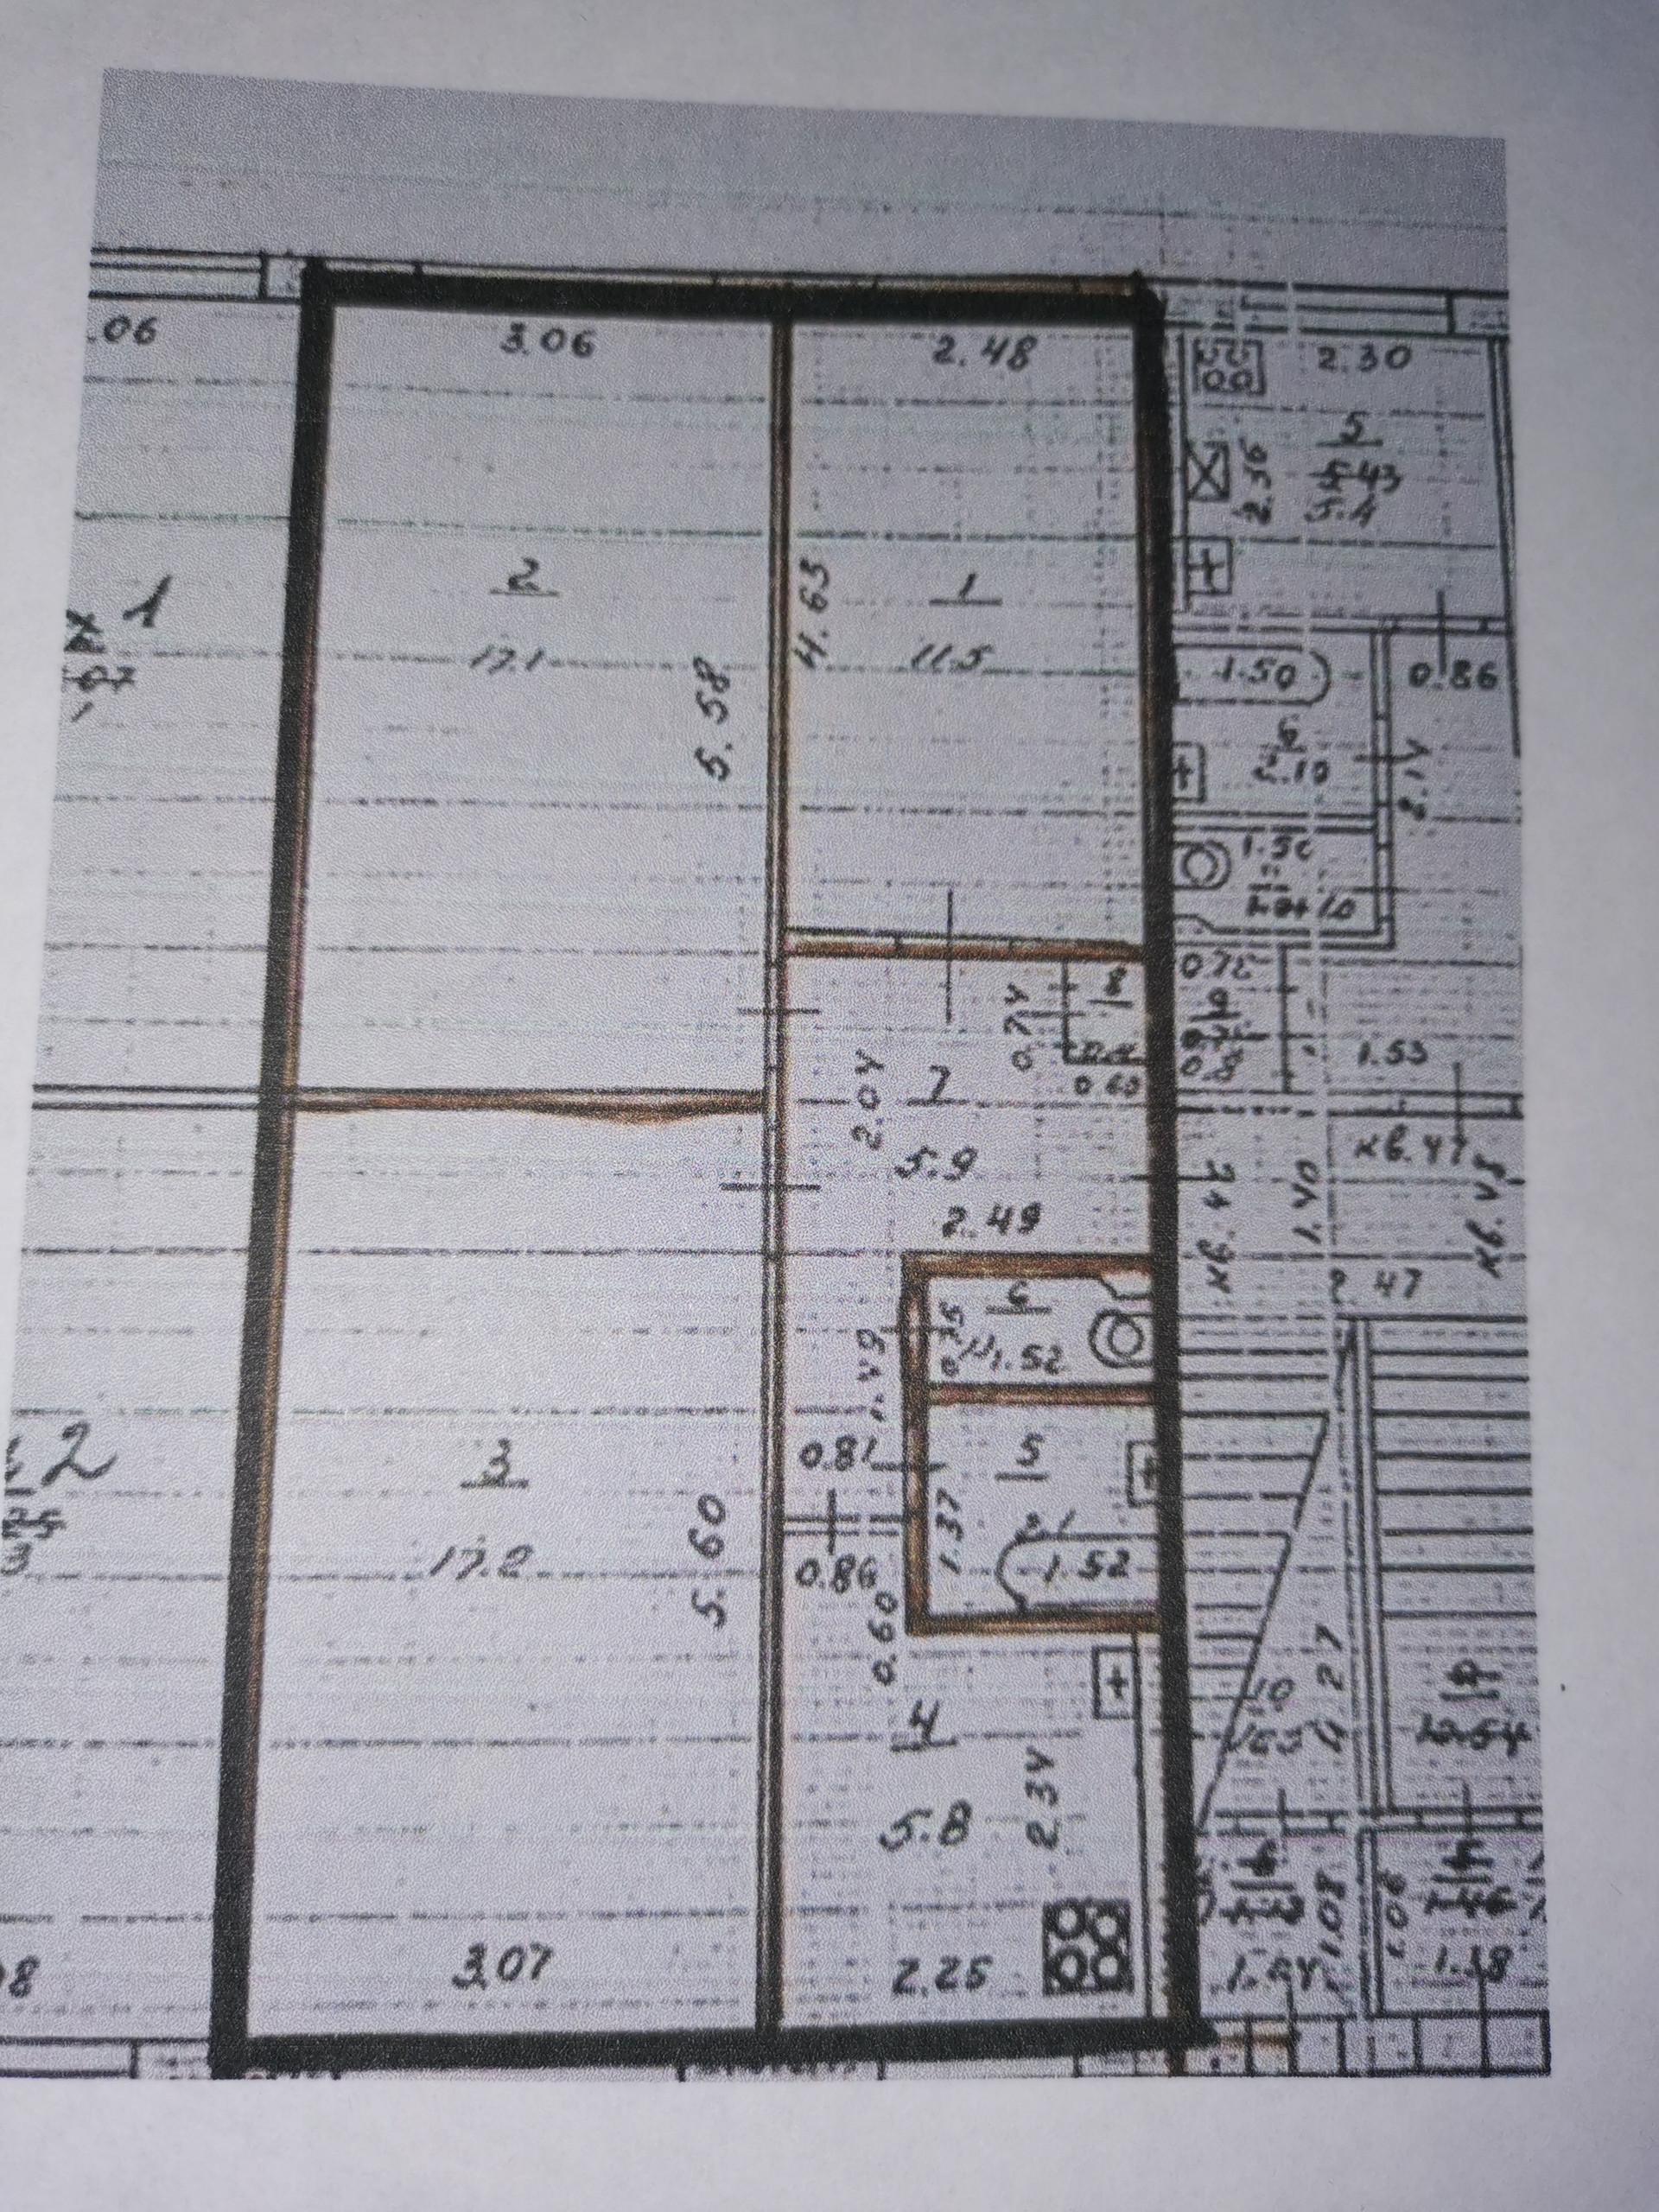 .06
3.06
2.48
2.30
5
5.43
5.4
2.36
2
17.1
5.58
4.63
1
11.5
1
1.50
0.86
6
2.10
2.14
1.50
0.72
8
0.74
0.60
1.53
2.04
7
5.9
2.49
кв. 47
кв. 46
1.40
кв. 45
2.47
6
0.75
1.52
1.49
0.81
5
1.37
1.52
0.86
0.60
2
3
17.2
5.60
4
5.8
2.34
10
4.27
3.07
2.25
1.08
1.06
1.38
08